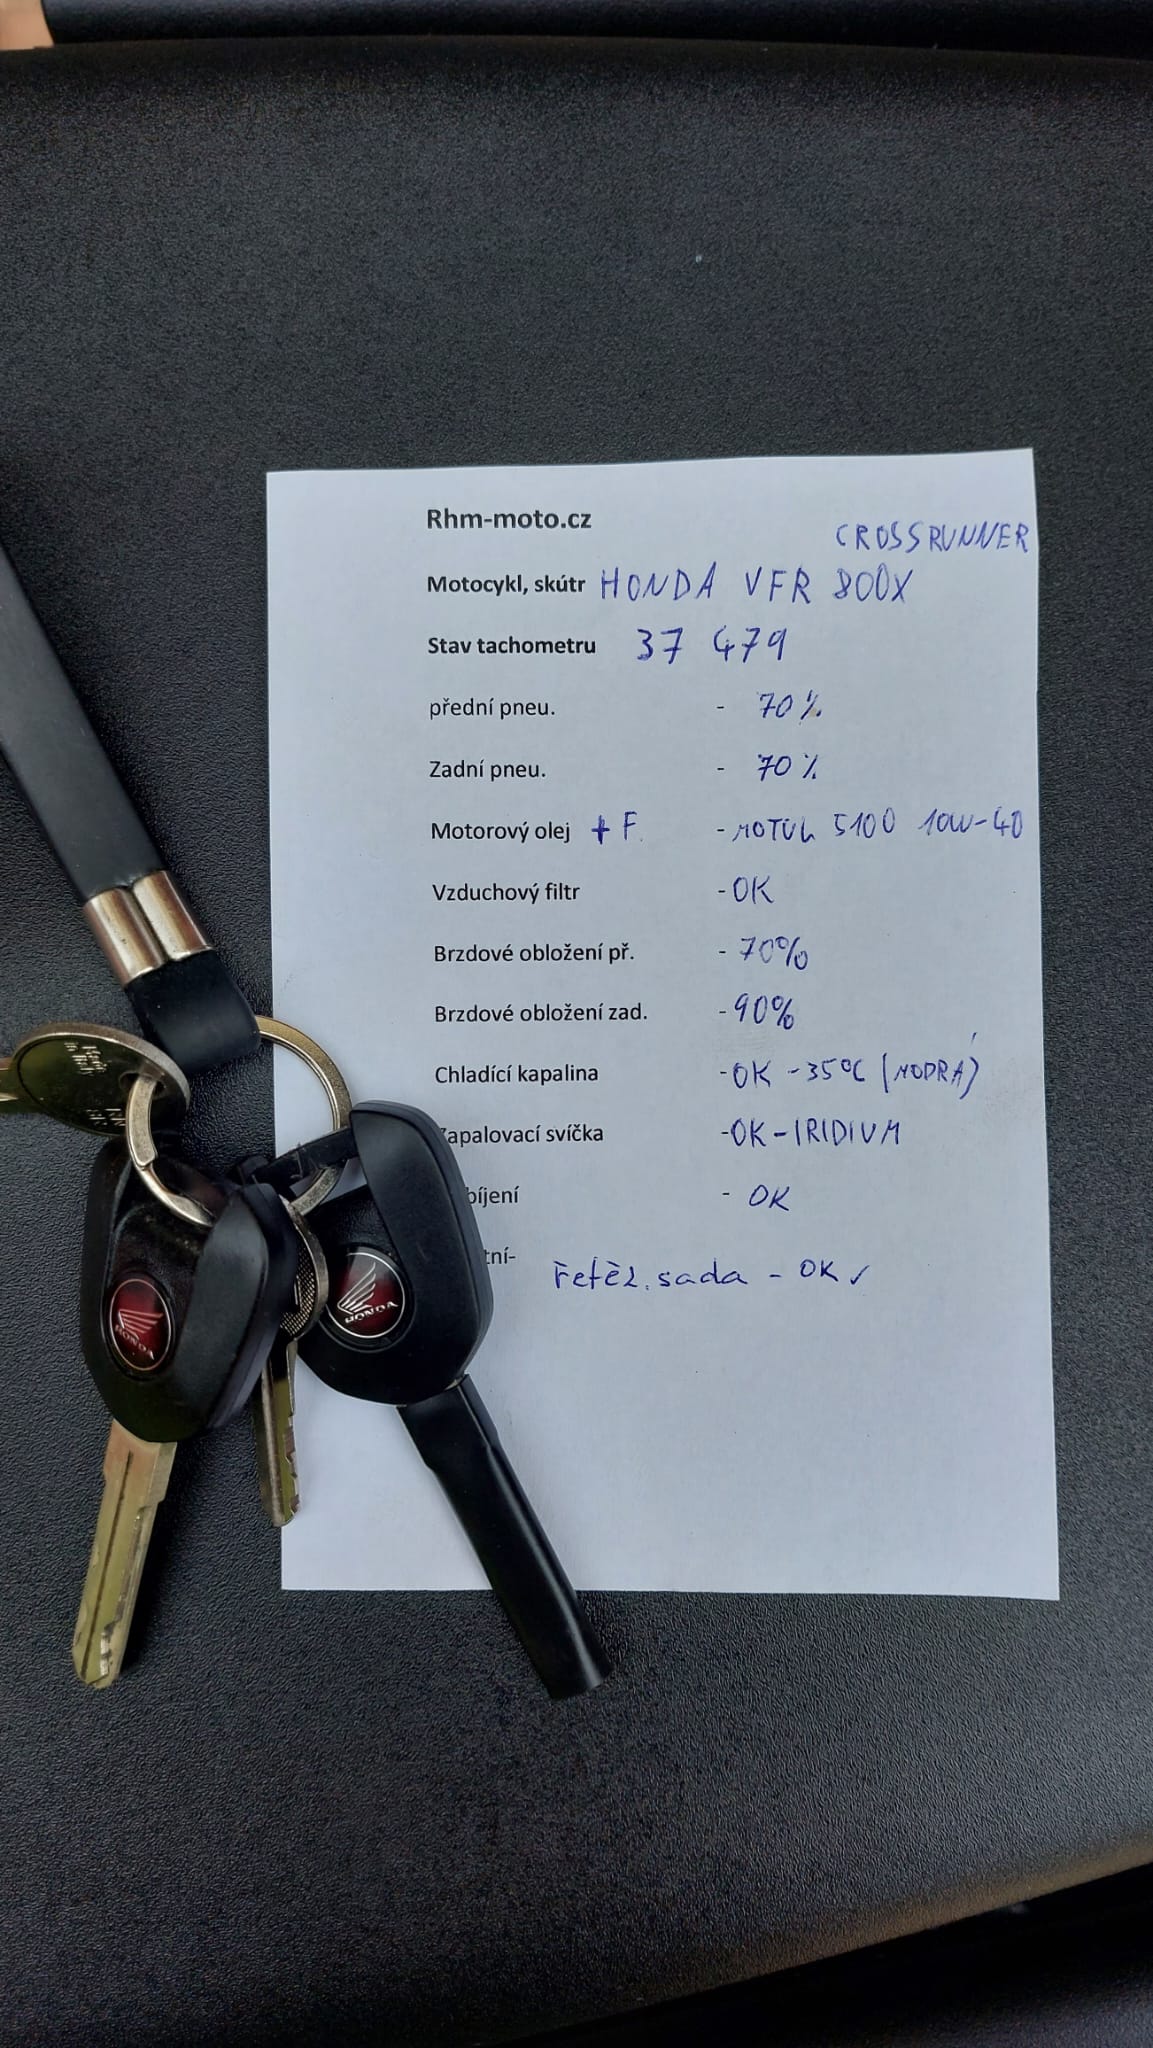 Rhm-moto.cz
CROSSRUNNER
Motocykl, skútr HONDA VFR 800X
Stav tachometru 37 479
přední pneu. - 70%
Zadní pneu. - 70%
Motorový olej + F. - MOTUL 5100 10W-40
Vzduchový filtr - OK
Brzdové obložení př. - 70%
Brzdové obložení zad. - 90%
Chladící kapalina - OK - 35°C (MODRÁ)
Zapalovací svíčka - OK - IRIDIUM
bíjení - OK
tní-
řetěz. sada - OK ✓
HONDA
HONDA